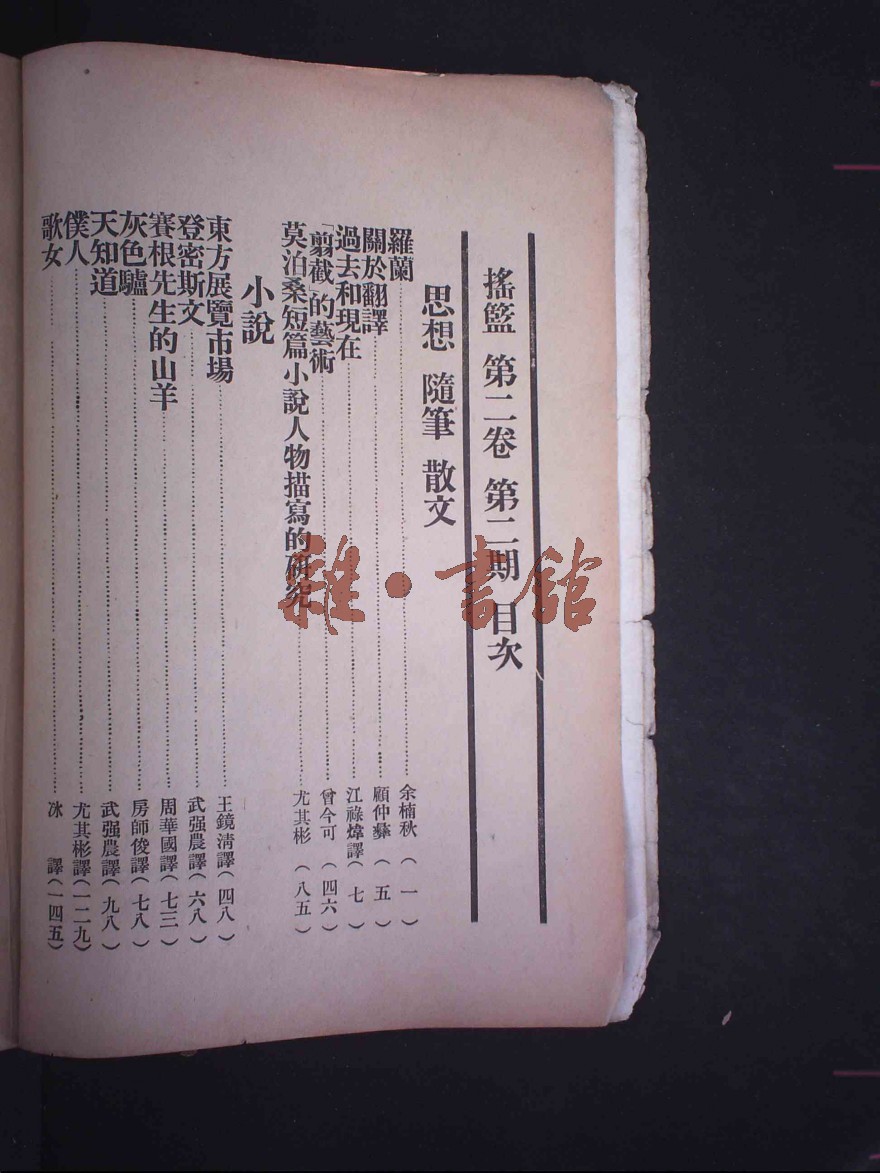 搖籃 第二卷 第二期 目次
思想 隨筆 散文
羅蘭……余楠秋（一）
關於翻譯……顧仲彝（五）
過去和現在……江祿煒譯（七）
「翦截」的藝術……曾今可（四六）
莫泊桑短篇小說人物描寫的研究……尤其彬（八五）
小說
東方展覽市場……王鏡清譯（四八）
登密斯文……武强農譯（六八）
賽根先生的山羊……周華國譯（七三）
灰色驢……房師俊譯（七八）
天知道……武强農譯（九八）
僕人……尤其彬譯（一二九）
歌女……冰 譯（一四五）
雜·書館